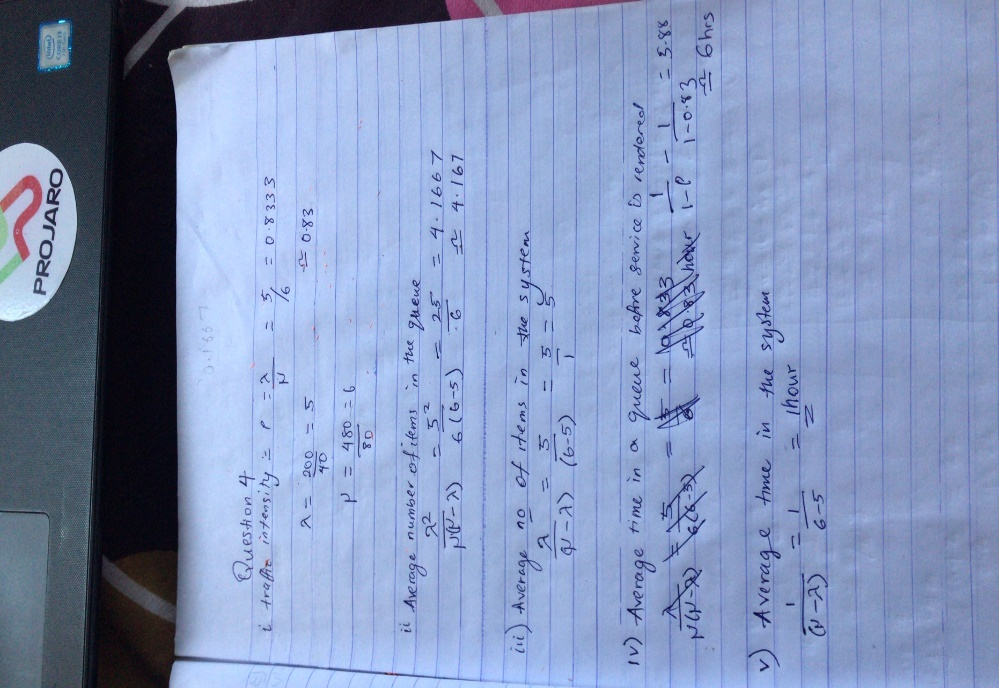 PROJARO
intel
CORE i3
0.1667
Question 4
i traffic intensity = ρ = λ/μ = 5/6 = 0.8333
≏ 0.83
λ = 200/40 = 5
μ = 480/80 = 6
ii Average number of items in the queue
λ²/μ(μ-λ) = 5²/6(6-5) = 25/6 = 4.1667
≏ 4.167
iii) Average no of items in the system
λ/(μ-λ) = 5/(6-5) = 5/1 = 5
iv) Average time in a queue before service is rendered
λ/μ(μ-λ) = 5/6(6-5) = 5/6 = 0.833 1/1-ρ - 1/1-0.83 = 5.88
≏ 0.83 hour ≏ 6hrs
v) Average time in the system
1/(μ-λ) = 1/6-5 = 1hour